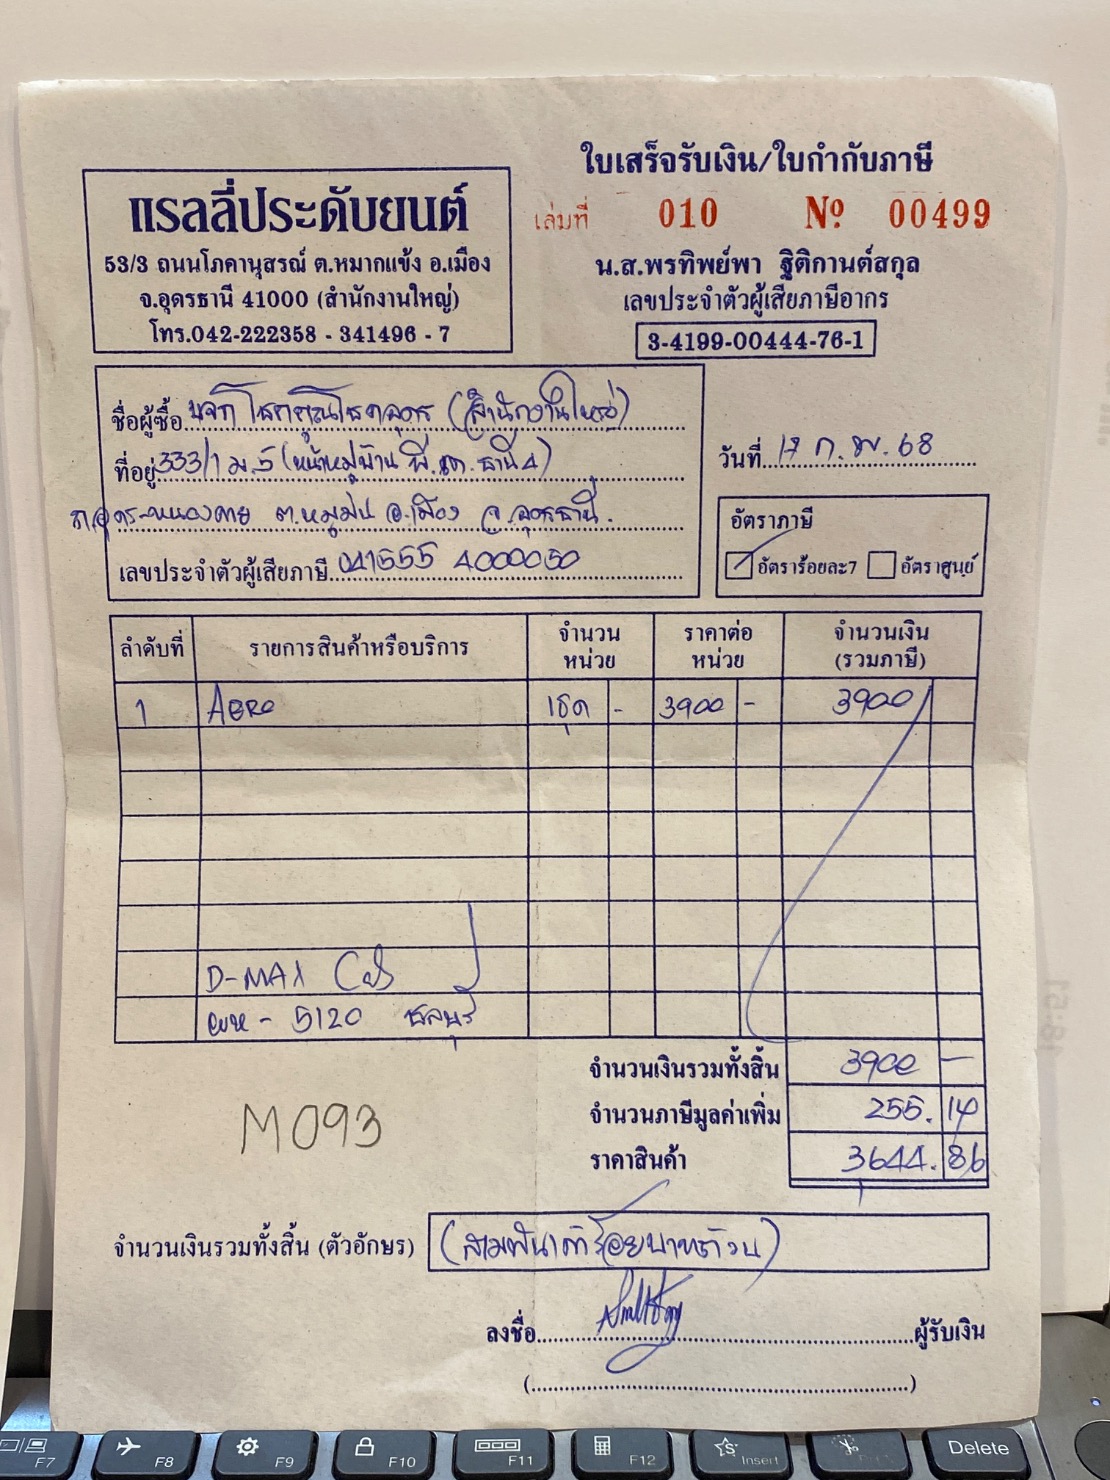 ใบเสร็จรับเงิน/ใบกำกับภาษี
แรลลี่ประดับยนต์
53/3 ถนนโภคานุสรณ์ ต.หมากแข้ง อ.เมือง
จ.อุดรธานี 41000 (สำนักงานใหญ่)
โทร.042-222358 - 341496 - 7
เล่มที่ 010 № 00499
น.ส.พรทิพย์พา ฐิติกานต์สกุล
เลขประจำตัวผู้เสียภาษีอากร
3-4199-00444-76-1
ชื่อผู้ซื้อ บจก โชคคูณโชคอุดร (สำนักงานใหญ่)
ที่อยู่ 333/1 ม.5 (หน้าหมู่บ้าน พี.เค.ธานี 4)
ถ.อุดร-หนองคาย ต.หมูม่น อ.เมือง จ.อุดรธานี.
เลขประจำตัวผู้เสียภาษี 041555 4000050
วันที่ 17 ก.พ. 68
อัตราภาษี
อัตราร้อยละ7 อัตราศูนย์
ลำดับที่ รายการสินค้าหรือบริการ จำนวนหน่วย ราคาต่อหน่วย จำนวนเงิน (รวมภาษี)
1 AERO 1ชุด - 3900 - 3900
D-MAX Cab
5120 ชลบุรี
จำนวนเงินรวมทั้งสิ้น 3900 -
จำนวนภาษีมูลค่าเพิ่ม 255. 14
ราคาสินค้า 3644. 86
M093
จำนวนเงินรวมทั้งสิ้น (ตัวอักษร) (สามพันเก้าร้อยบาทถ้วน)
ลงชื่อ ผู้รับเงิน
F7
F8
F9
F10
F11
F12
Insert
Delete